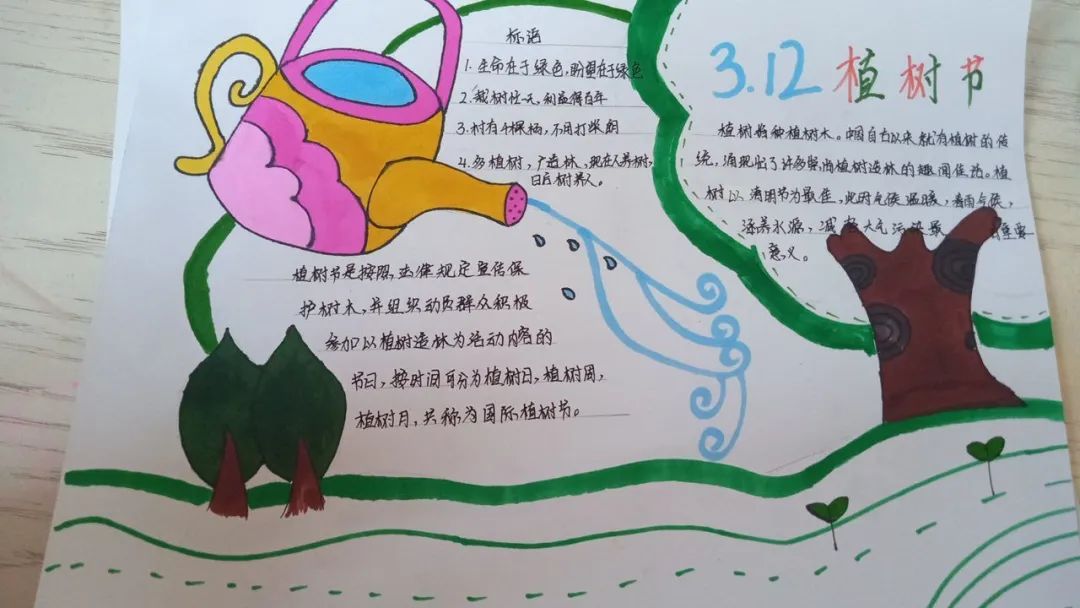 3.12 植树节
标语
1. 生命在于绿色，盼望在于绿色
2. 栽树忙一天，利益得百年
3. 村有千棵杨，不用打柴郎
4. 多植树，广造林，现在人养树，
日后树养人。
植树节是按照法律规定宣传保
护树木，并组织动员群众积极
参加以植树造林为活动内容的
节日，按时间可分为植树日，植树周，
植树月，共称为国际植树节。
植树 种植树木。中国自古以来就有植树的传
统，涌现出了许多 植树造林的趣闻佳话。植
树以清明节为最佳，此因气候温暖，
涵养水源，减 大气污染 重要
意义。